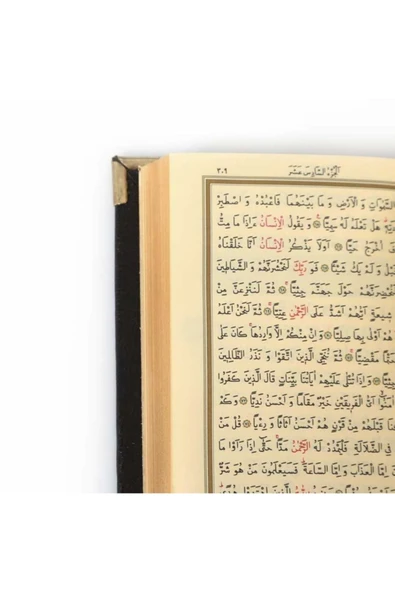 الجزء السادس عشر ٣٠٩
السَّمٰوَاتِ وَ الْاَرْضِ وَ مَا بَيْنَهُمَا فَاعْبُدْهُ وَ اصْطَبِرْ
هَلْ تَعْلَمُ لَهُ سَمِيًّا وَ يَقُولُ الْاِنْسَانُ ءَاِذَا مَا مِتُّ
اُخْرَجُ حَيًّا اَوَلَا يَذْكُرُ الْاِنْسَانُ اَنَّا خَلَقْنَاهُ
وَ لَمْ يَكُ شَيْئًا فَوَ رَبِّكَ لَنَحْشُرَنَّهُمْ وَ الشَّيَاطِينَ
حَوْلَ جَهَنَّمَ جِثِيًّا ثُمَّ لَنَنْزِعَنَّ مِنْ
شِيعَةٍ اَيُّهُمْ اَشَدُّ عَلَى الرَّحْمٰنِ عِتِيًّا ثُمَّ لَنَحْنُ اَعْلَمُ
هُمْ اَوْلٰى بِهَا صِلِيًّا وَ اِنْ مِنْكُمْ اِلَّا وَارِدُهَا كَانَ عَلٰى
مَقْضِيًّا ثُمَّ نُنَجِّي الَّذِينَ اتَّقَوْا وَ نَذَرُ الظَّالِمِينَ
وَ اِذَا تُتْلٰى عَلَيْهِمْ اٰيَاتُنَا بَيِّنَاتٍ قَالَ الَّذِينَ كَفَرُوا
اٰمَنُوا اَيُّ الْفَرِيقَيْنِ خَيْرٌ مَقَامًا وَ اَحْسَنُ نَدِيًّا وَ كَمْ
قَبْلَهُمْ مِنْ قَرْنٍ هُمْ اَحْسَنُ اَثَاثًا وَ رِءْيًا قُلْ مَنْ
فِي الضَّلَالَةِ فَلْيَمْدُدْ لَهُ الرَّحْمٰنُ مَدًّا حَتّٰى اِذَا رَاَوْا مَا
اِمَّا الْعَذَابَ وَ اِمَّا السَّاعَةَ فَسَيَعْلَمُونَ مَنْ هُوَ شَرٌّ
الَّذِينَ اهْتَدَوْا هُدًى